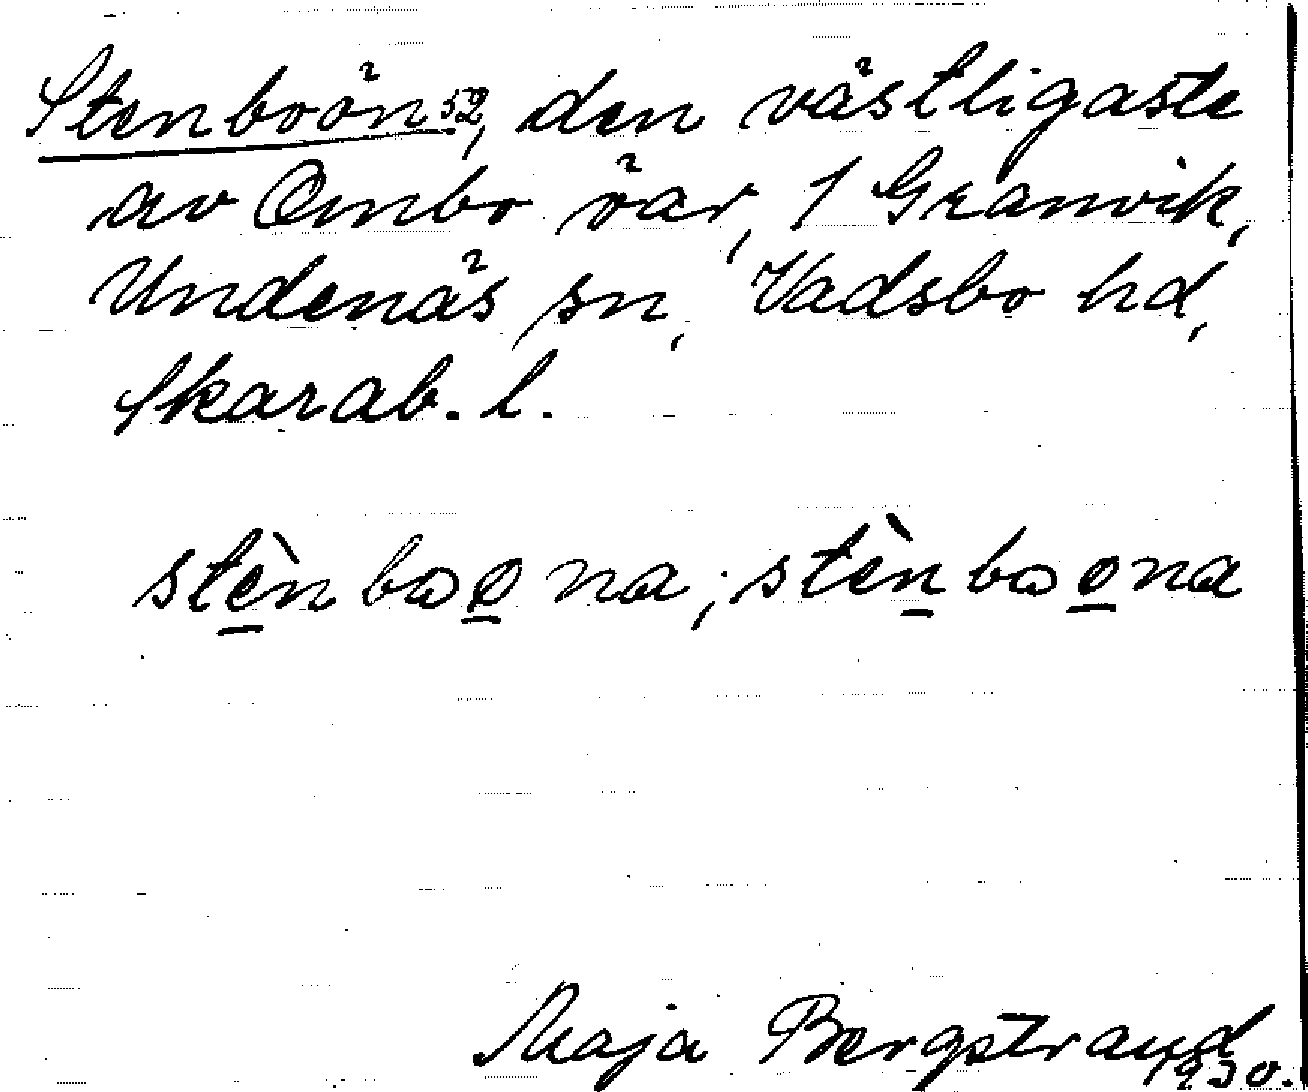 Stenboön 52, den västligaste
av Ombo öar, 1 Granvik,
Undenäs sn, Vadsbo hd,
Skarab. l.
stènbɷøna; stènbɷøna
Maja Bergstrand
1930.